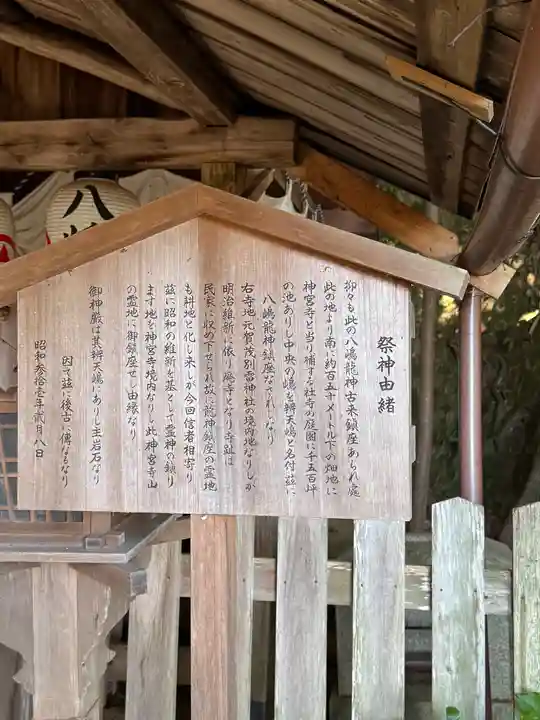 祭神由緒
抑々も此の八嶋龍神古来鎮座あられ處
此の地より南に約百五十メートル下の畑地に
神宮寺と当り補する社寺の庭園に千五百坪
の池ありし中央の嶋を辨天嶋と名付茲に
八嶋龍神鎮座なられしなり
右寺地元賀茂別雷神社の境内地なりしが
明治維新に依り廃寺となり寺跡は
民家に収め下せられ故に龍神鎮座の霊地
も耕地と化し来しが今回信者相寄り
茲に昭和の維新を基として霊神の鎮り
ます地を神宮寺境内なりし此神宮寺山
の霊地に御鎮座せし由縁なり
御神厳は其辨天嶋にありし主岩石なり
因て茲に後古に傳なるもなり
昭和参拾壱年弐月八日
八嶋